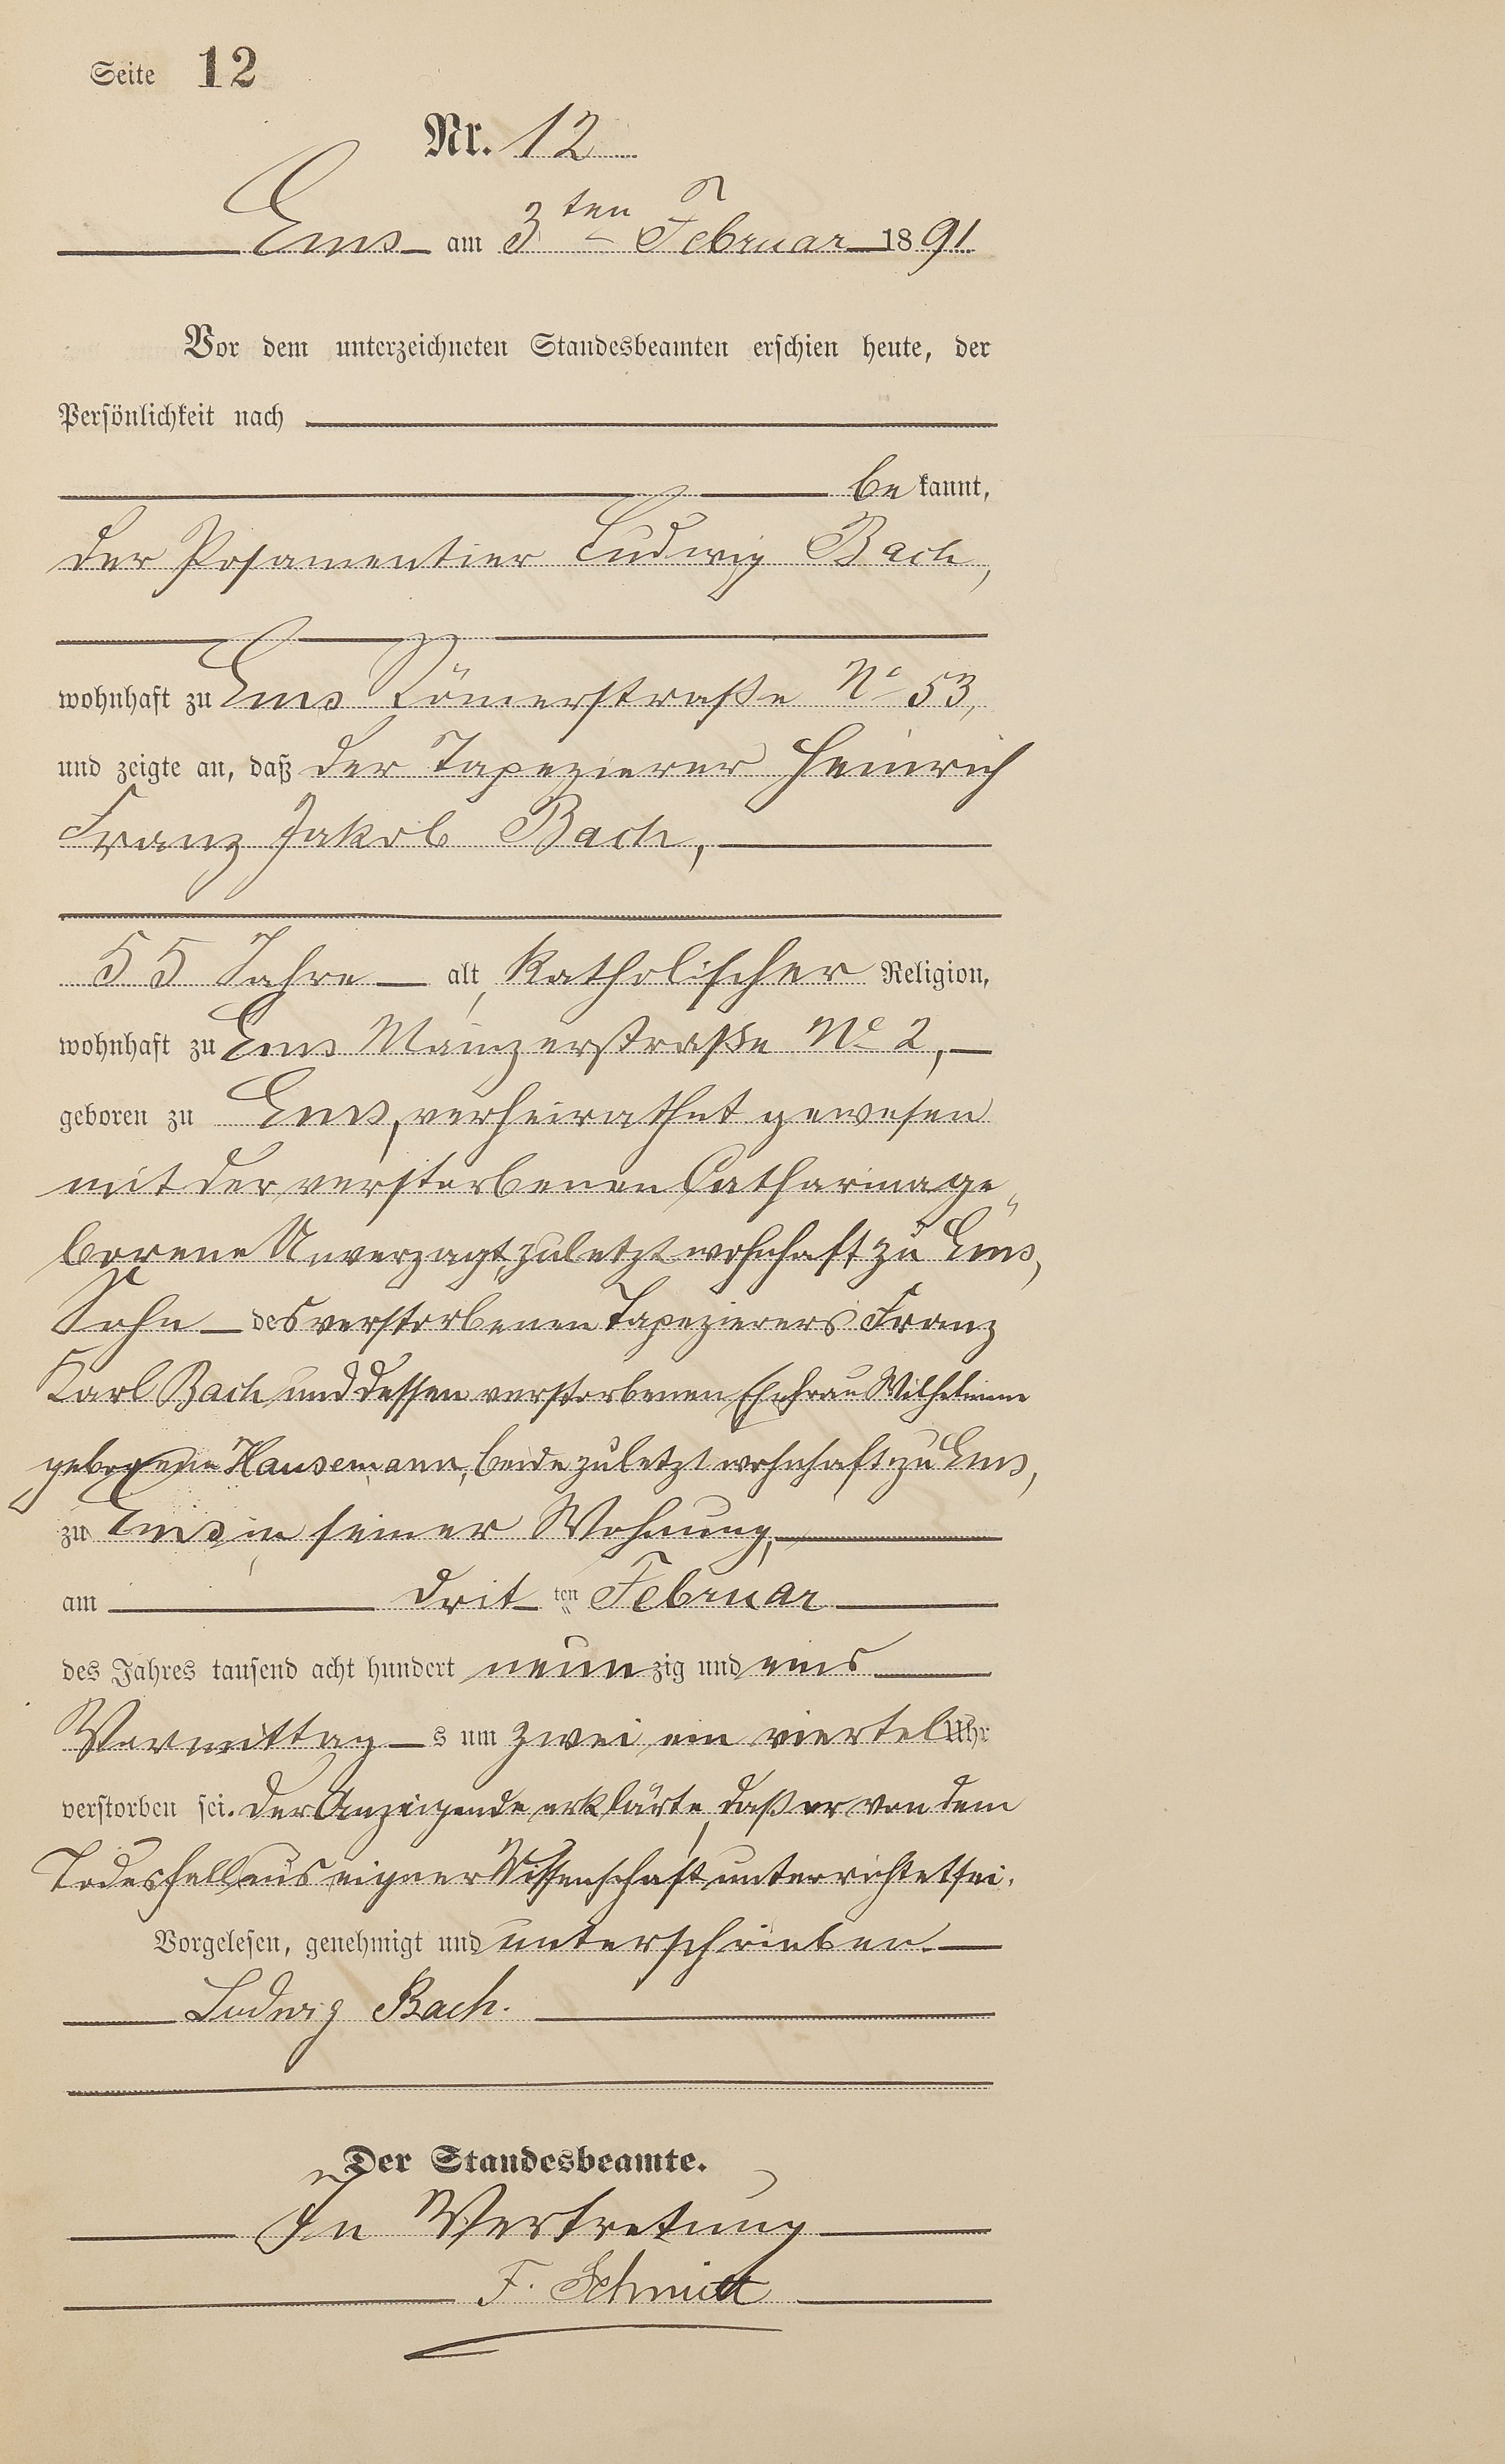 Seite 12
Nr. 12
Ems am 3ten Februar 1891
Vor dem unterzeichneten Standesbeamten erschien heute, der
Persönlichkeit nach
bekannt,
der Posamentier Ludwig Bach,
wohnhaft zu Ems Römerstraße No 53,
und zeigte an, daß der Tapezierer Heinrich
Franz Jakob Bach,
55 Jahre alt, katholischer Religion,
wohnhaft zu Ems Mainzerstraße No 2,
geboren zu Ems, verheirathet gewesen
mit der verstorbenen Catharina ge„
borene Unverzagt, zuletzt wohnhaft zu Ems,
Sohn des verstorbenen Tapezierers Franz
Karl Bach und dessen verstorbenen Ehefrau Wilhelmine
geborene Hausemann, beide zuletzt wohnhaft zu Ems,
zu Ems in seiner Wohnung,
am dritten Februar
des Jahres tausend acht hundert neunzig und eins
Vormittags um zwei ein viertel Uhr
verstorben sei. Der Anzeigende erklärte, daß er von dem
Todesfall aus eigner Wissenschaft unterrichtet sei.
Vorgelesen, genehmigt und unterschrieben.
Ludwig Bach.
Der Standesbeamte.
In Vertretung
F. Schmitt